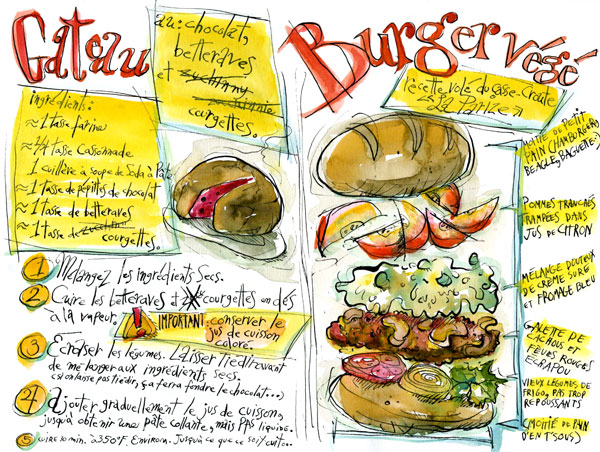 Gâteau
au: chocolat,
betteraves
et zuchinny
zuchinnie
courgettes.
ingrédients:
≈ 1 tasse farine
≈ 1/4 tasse cassonnade
1 cuillère à soupe de soda à pâte
≈ 1 tasse de pépites de chocolat
≈ 1 tasse de betteraves
≈ 1 tasse de zucchini
courgettes.
1 Mélangez les ingrédients secs.
2 Cuire les betteraves et courgettes en dés
à la vapeur.
IMPORTANT: conserver le
jus de cuisson
coloré.
3 Écraser les légumes. Laisser tiédir avant
de mélanger aux ingrédients secs.
(si on laisse pas tiédir, ça fera fondre le chocolat...)
4 Ajouter graduellement le jus de cuisson,
jusqu'à obtenir une pâte collante, mais PAS liquide.
5 cuire 30 min. à 350°F. Environ. Jusqu'à ce que ce soit cuit...
Burger végé
recette volé du Casse-Croute
La Parizen
MOITIÉ DE PETIT
PAIN (HAMBURGER,
BEAGLE, BAGUETTE)
POMMES TRANCHÉES
TRAMPÉES DANS
JUS DE CITRON
MÉLANGE DOUTEUX
DE CRÈME SURE
ET FROMAGE BLEU
GALETTE DE
CACHOUS ET
FÈVES ROUGES
ECRAPOU
VIEUX LÉGUMES DE
FRIGO, PAS TROP
REPOUSSANTS
(MOITIÉ DE PAIN
D'EN T'SOUS)